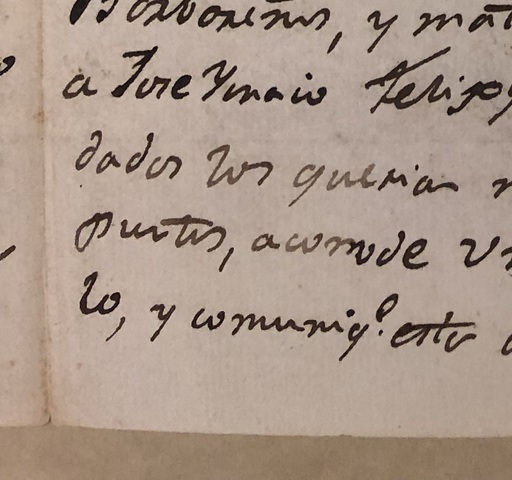 Borboxeños, y mat
a Jose Ygnacio Felip
dados los querian
puntos, acomode Un
lo, y comuniq.e esto